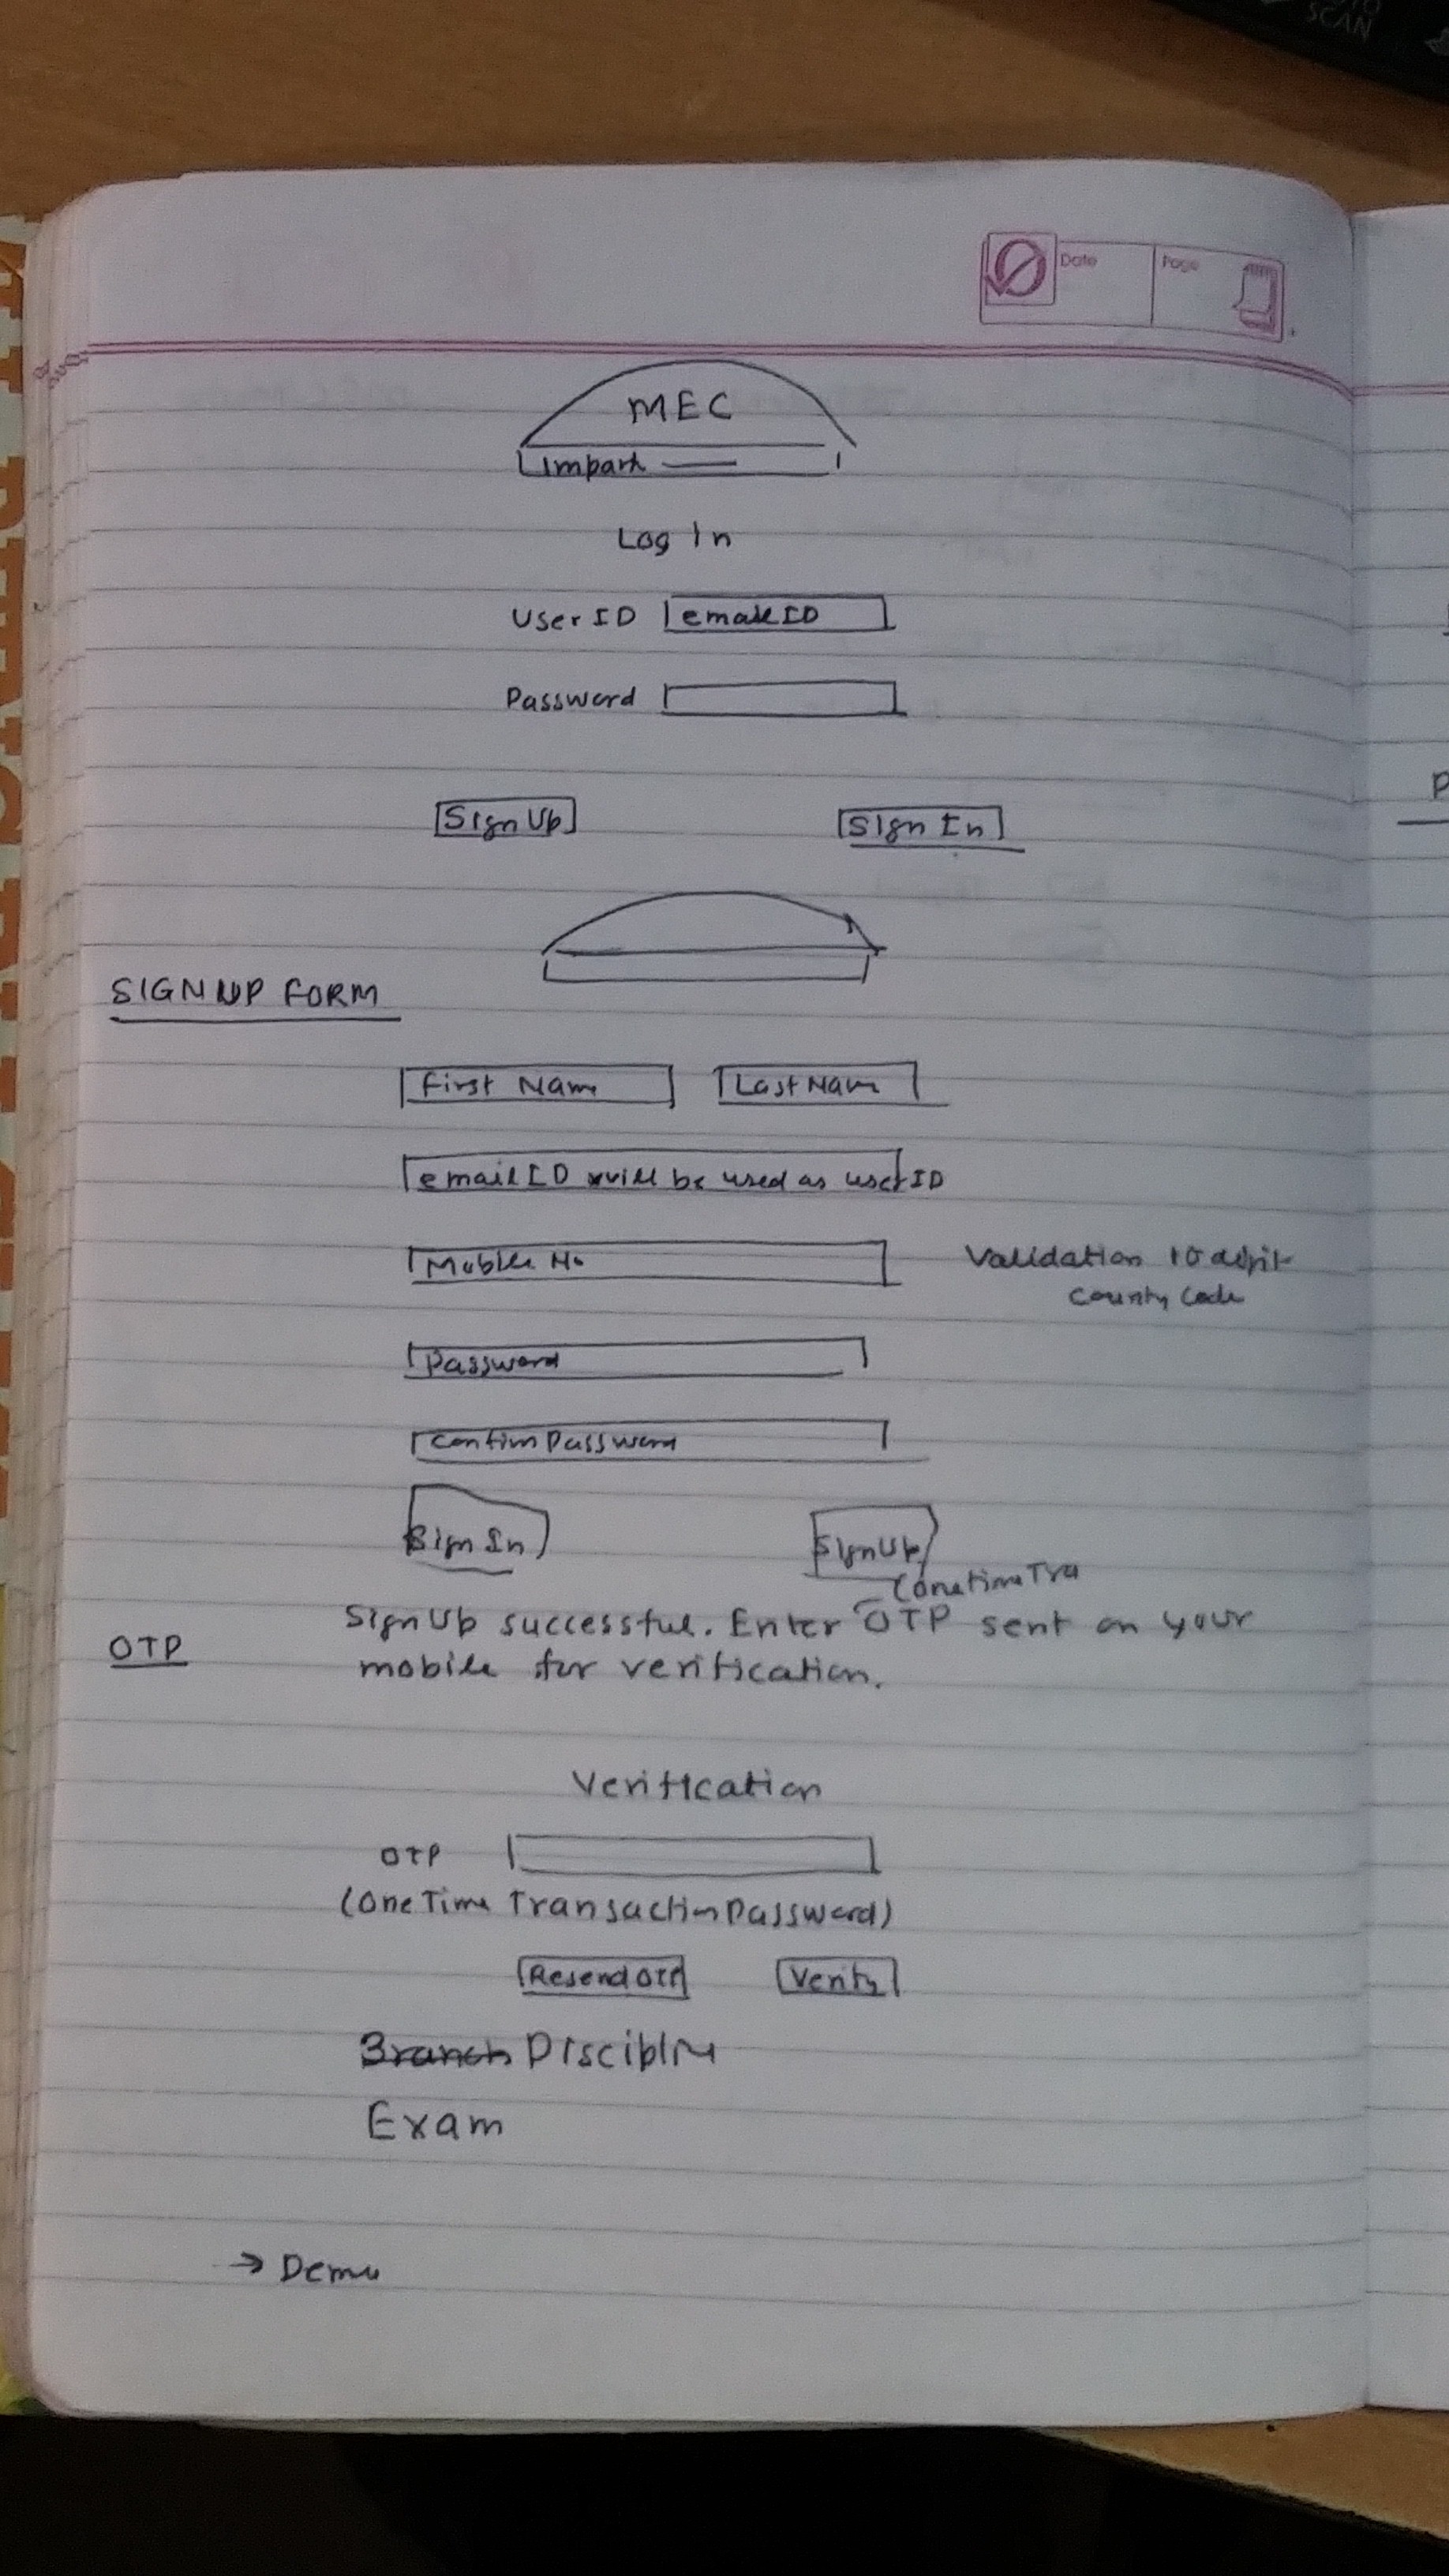 SCAN
Date
Page
MEC
Impart
Log In
User ID emailID
Password
SignUp
Sign In
SIGNUP FORM
First Name
Last Name
emailID will be used as userID
Mobile No
Validation 10 digit
County Code
Password
Confirm Password
Sign In
SignUp
(One time Tra
SignUp successful. Enter OTP sent on your
OTP
mobile for verification.
Verification
OTP
(One Time Transaction Password)
Resend OTP
Verify
Branch Discipline
Exam
→ Demo